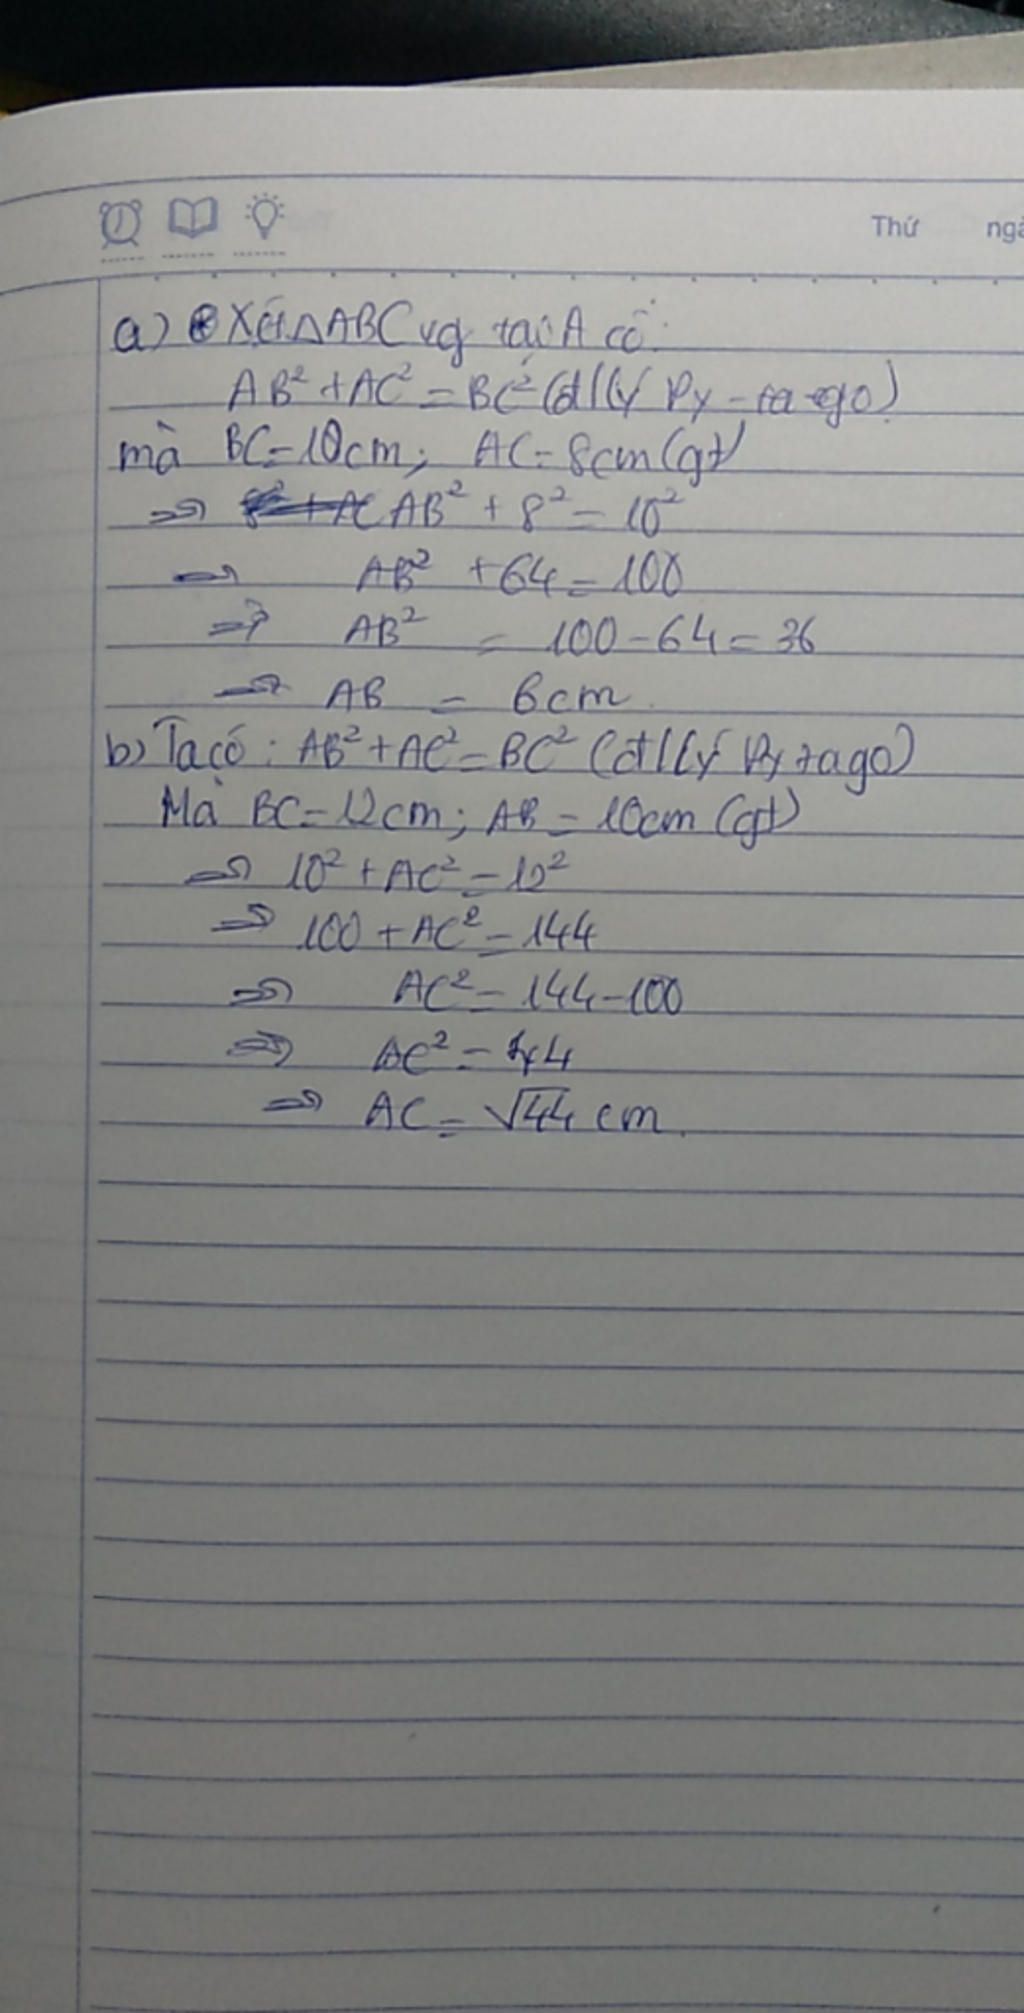 Thứ ngà
a) Xét △ABC vg tại A có:
AB² + AC² = BC² (đ/lý Py-ta-go)
mà BC = 10cm; AC = 8cm (gt)
⇒ AB² + 8² = 10²
⇒ AB² + 64 = 100
⇒ AB² = 100 - 64 = 36
⇒ AB = 6cm.
b) Ta có: AB² + AC² = BC² (đ/lý Pytago)
Mà BC = 12cm; AB = 10cm (gt)
⇒ 10² + AC² = 12²
⇒ 100 + AC² = 144
⇒ AC² = 144 - 100
⇒ AC² = 44
⇒ AC = √44 cm.